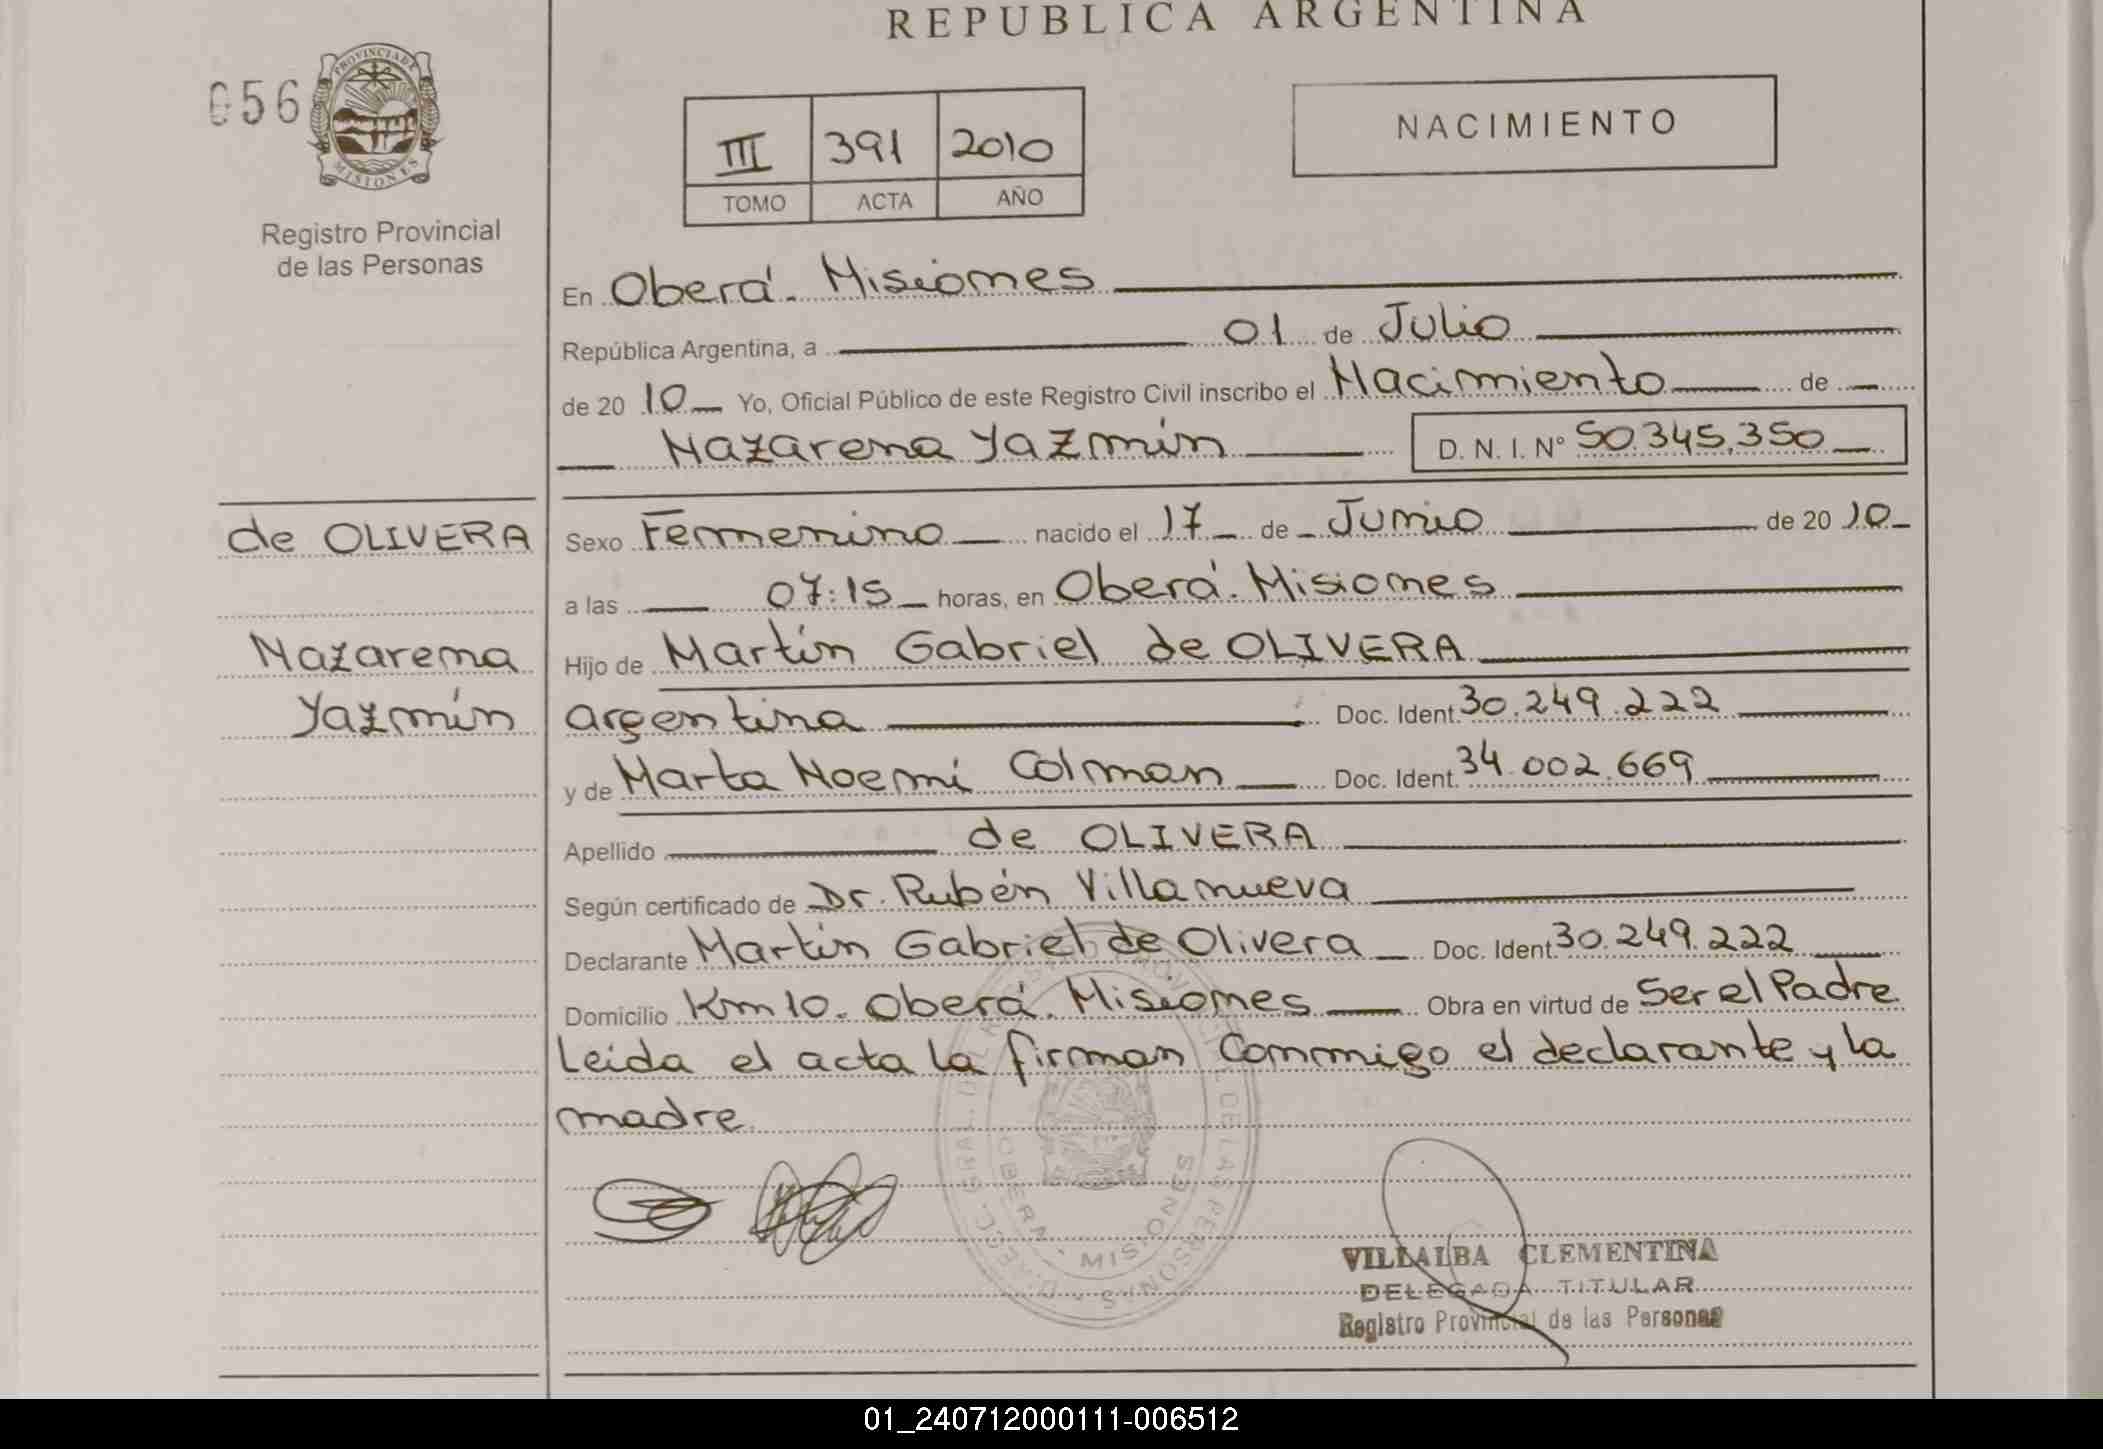 REPUBLICA ARGENTINA
056
PROVINCIA DE
MISIONES
Registro Provincial
de las Personas
III 391 2010
TOMO ACTA AÑO
NACIMIENTO
En Oberá. Misiones
República Argentina, a 01 de Julio
de 2010 Yo, Oficial Público de este Registro Civil inscribo el Nacimiento de
Nazarena Yazmín D. N. I. Nº 50.345.350
de OLIVERA
Nazarena
Yazmín
Sexo Femenino nacido el 17 de Junio de 2010
a las 07:15 horas, en Oberá. Misiones
Hijo de Martín Gabriel de OLIVERA
argentina Doc. Ident. 30.249.222
y de Marta Noemí Colman Doc. Ident. 34.002.669
Apellido de OLIVERA
Según certificado de Dr. Rubén Villanueva
Declarante Martín Gabriel de Olivera Doc. Ident. 30.249.222
Domicilio Km 10. Oberá. Misiones Obra en virtud de Ser el Padre
Leida el acta la firman Conmigo el declarante y la
madre
OBERA - MISIONES
VILLALBA CLEMENTINA
DELEGADA TITULAR
Registro Provincial de las Personas
01_240712000111-006512